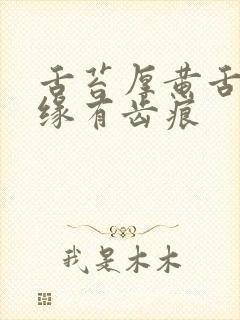 舌苔厚黄舌
缘有齿痕
我是木木